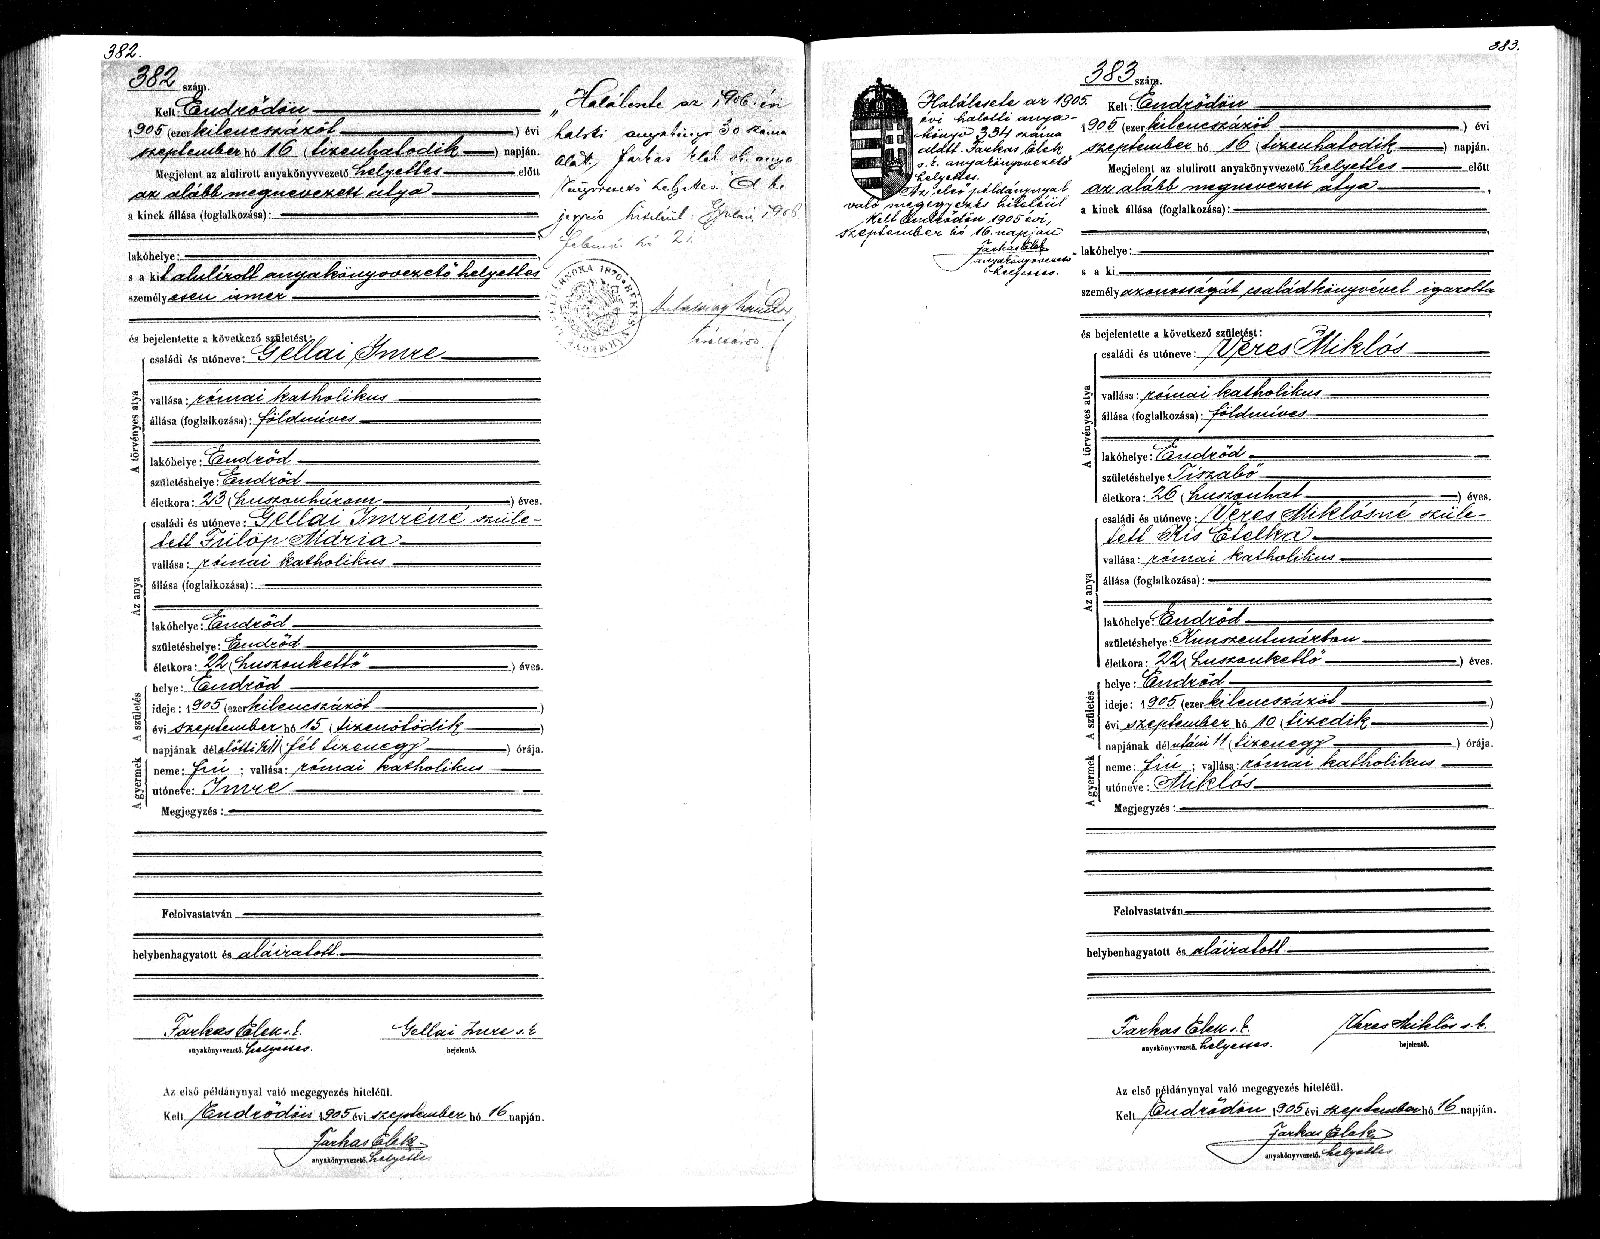 382.
382 szám.
Kelt: Endrődön
1905 (ezer kilencszázöt) évi
szeptember hó 16 (tizenhatodik) napján.
Megjelent az alulirott anyakönyvvezető helyettes előtt
az alább megnevezett atya
a kinek állása (foglalkozása):
lakóhelye:
s a kit alulírott anyakönyvvezető helyettes
személyesen ismer
és bejelentette a következő születést:
A törvényes atya
családi és utóneve: Gellai Imre
vallása: római katholikus
állása (foglalkozása): földmíves
lakóhelye: Endrőd
születéshelye: Endrőd
életkora: 23 (huszonhárom) éves.
Az anya
családi és utóneve: Gellai Imréné szüle-
tett Fülöp Mária
vallása: római katholikus
állása (foglalkozása):
lakóhelye: Endrőd
születéshelye: Endrőd
életkora: 22 (huszonkettő) éves.
A születés
helye: Endrőd
ideje: 1905 (ezer kilencszázöt)
évi szeptember hó 15 (tizenötödik)
napjának délelőtti ½11 (fél tizenegy) órája.
A gyermek
neme: fiú; vallása: római katholikus
utóneve: Imre
Megjegyzés:
Felolvastatván
helybenhagyatott és aláiratott.
Farkas Elek s.k. Gellai Imre s.k.
anyakönyvvezető. helyettes. bejelentő.
Az első példánynyal való megegyezés hiteléül.
Kelt Endrődön 1905 évi szeptember hó 16 napján.
Farkas Elek
anyakönyvvezető. helyettes
„Halálesete az 1906. évi
halotti anyakönyv 30 száma
alatt, Farkas Elek sk. anya
könyvvezető helyettes."
Gyulai, 1906.
február hó 21.
383.
383 szám.
Halálesete az 1905.
évi halotti anya-
könyv 334 száma
alatt. Farkas Elek
s.k. anyakönyvvezető
helyettes.
Az első példánynyal
való megegyezés hiteléül
Kelt Endrődön 1905 évi,
szeptember hó 16. napján
Farkas Elek
anyakönyvvezető
helyettes.
Kelt: Endrődön
1905 (ezer kilencszázöt) évi
szeptember hó 16 (tizenhatodik) napján.
Megjelent az alulirott anyakönyvvezető helyettes előtt
az alább megnevezett atya
a kinek állása (foglalkozása):
lakóhelye:
s a ki
személyazonosságát családkönyvével igazolta
és bejelentette a következő születést:
A törvényes atya
családi és utóneve: Veres Miklós
vallása: római katholikus
állása (foglalkozása): földmíves
lakóhelye: Endrőd
születéshelye Tiszabő
életkora: 26 (huszonhat) éves.
Az anya
családi és utóneve: Veres Miklósné szüle-
tett Kis Etelka
vallása: római katholikus
állása (foglalkozása):
lakóhelye: Endrőd
születéshelye: Kunszentmárton
életkora: 22 (huszonkettő) éves.
A születés
helye: Endrőd
ideje: 1905 (ezer kilencszázöt)
évi szeptember hó 10 (tizedik)
napjának délutáni 11 (tizenegy) órája.
A gyermek
neme: fiú; vallása: római katholikus
utóneve: Miklós
Megjegyzés:
Felolvastatván
helybenhagyatott és aláiratott.
Farkas Elek s.k. Veres Miklós s.k.
anyakönyvvezető. helyettes. bejelentő.
Az első példánynyal való megegyezés hiteléül.
Kelt Endrődön 1905 évi szeptember hó 16 napján.
Farkas Elek
anyakönyvvezető. helyettes